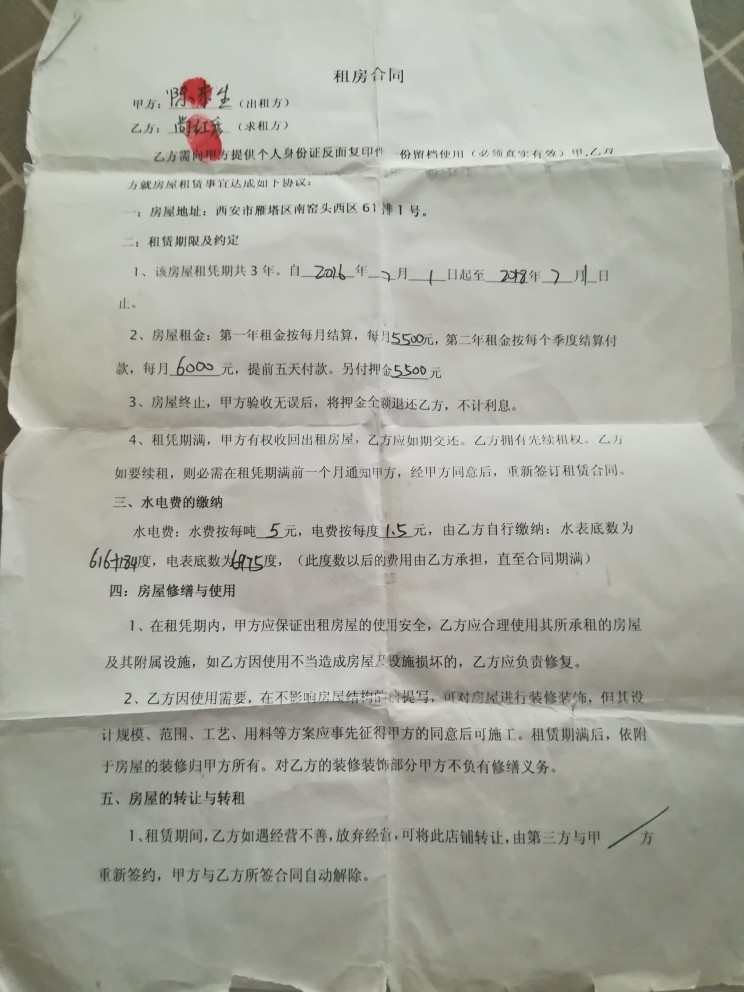 租房合同
甲方：陈来生（出租方）
乙方：尚红（求租方）
乙方需向甲方提供个人身份证反面复印件 份留档使用（必须真实有效）甲,乙双
方就房屋租赁事宜达成如下协议：
一：房屋地址：西安市雁塔区南窑头西区61排1号。
二：租赁期限及约定
1、该房屋租凭期共3年。自2016年 月1日起至2018年7月 日
止。
2、房屋租金：第一年租金按每月结算，每月5500元，第二年租金按每个季度结算付
款，每月6000元，提前五天付款。另付押金5500元
3、房屋终止，甲方验收无误后，将押金全额退还乙方，不计利息。
4、租凭期满，甲方有权收回出租房屋，乙方应如期交还。乙方拥有先续租权。乙方
如要续租，则必需在租凭期满前一个月通知甲方，经甲方同意后，重新签订租赁合同。
三、水电费的缴纳
水电费：水费按每吨5元，电费按每度1.5元，由乙方自行缴纳：水表底数为
度，电表底数为6975度，（此度数以后的费用由乙方承担，直至合同期满）
四：房屋修缮与使用
1、在租凭期内，甲方应保证出租房屋的使用安全，乙方应合理使用其所承租的房屋
及其附属设施，如乙方因使用不当造成房屋及设施损坏的，乙方应负责修复。
2、乙方因使用需要，在不影响房屋结构的前提写，可对房屋进行装修装饰，但其设
计规模、范围、工艺、用料等方案应事先征得甲方的同意后可施工。租赁期满后，依附
于房屋的装修归甲方所有。对乙方的装修装饰部分甲方不负有修缮义务。
五、房屋的转让与转租
1、租赁期间，乙方如遇经营不善，放弃经营，可将此店铺转让，由第三方与甲 方
重新签约，甲方与乙方所签合同自动解除。